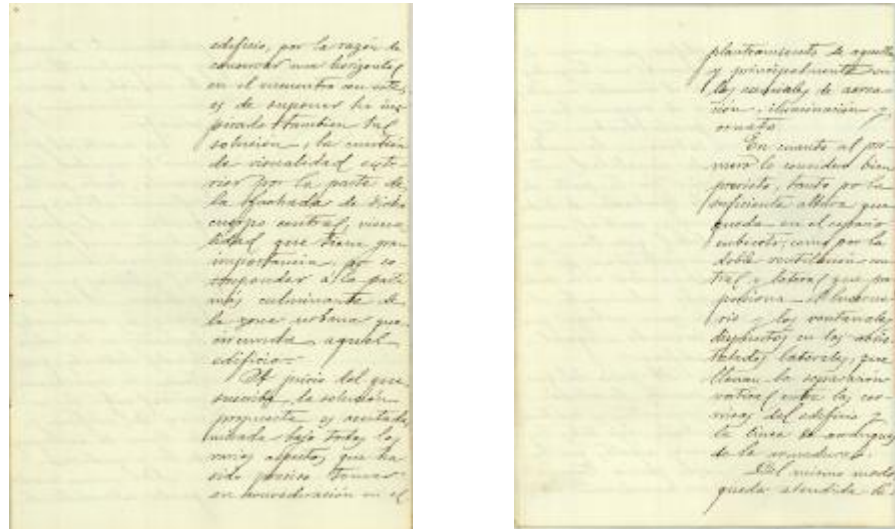 edificio, por la razón de
conservar una horizontal
en el encuentro con este,
es de suponer ha ins-
pirado tambien tal
solución, la cuestión
de visualidad exte-
rior por la parte de
la fachada de dicho
cuerpo central, visua-
lidad que tiene gran
importancia, por co-
rresponder a la parte
más culminante de
la zona urbana que
circunda aquel
edificio.
A juicio del que
suscribe, la solución
propuesta es acertada
mirada bajo todos los
varios aspectos que ha
sido preciso tomar
en consideración en el
planteamiento de aquella
y principalmente con
los esenciales de aerea-
ción, iluminación y
ornato.
En cuanto al pri-
mero lo considera bien
previsto, tanto por la
suficiente altura que
queda en el espacio
cubierto, como por la
doble ventilación cen-
tral y lateral que pro-
porciona el lucerna-
rio y los ventanales
dispuestos en los
laterales, que
llenan la separación
vertical entre las cor-
nisas del edificio y
la linea de arranques
de la armadura.
Del mismo modo
queda atendida la